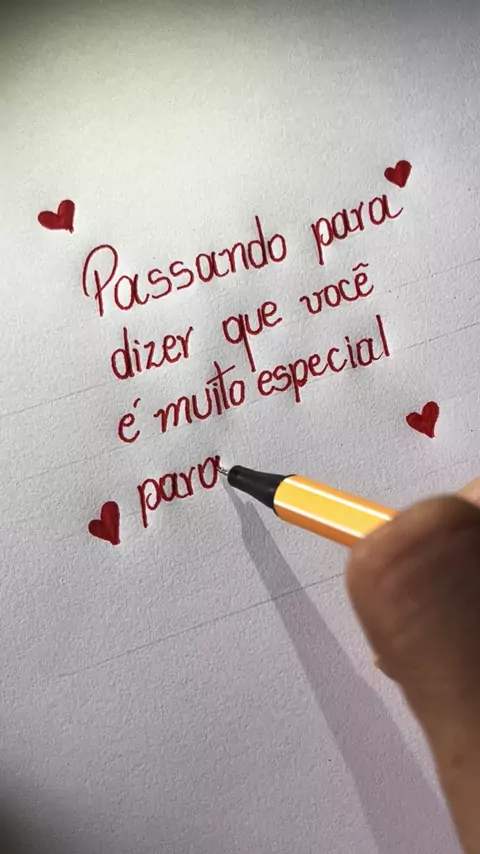 Passando para
dizer que você
é muito especial
para